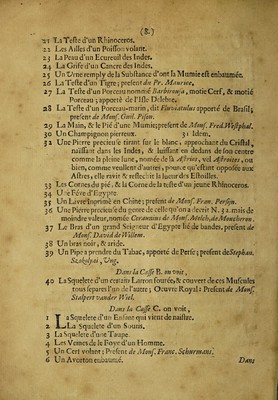 (8.)
21 La Teste d'un Rhinoceros.
22 Les Ailles d'un Poisson volant.
23 La Peau d'un Ecureuil des Indes.
24 La Grife d'un Cancre des Indes.
25 Un Urne remply de la Substance d'ont la Mumie est enbaumée.
26 La Teste d'un Tigre; present du Pr. Maurice,
27 La Teste d'un Porceau nommé Barbirousa, motie Cerf, & motié
Porceau; apporté de l'Isle Delebre.
28 La Teste d'un Porceau-marin, dit Fluviatulus apporté de Brasil;
present de Mons. Guil. Pison.
29 La Main, & le Pié d'une Mumie; present de Mons. Fred. Westphal.
30 Un Champignon pierreux. 31 Idem.
32 Une Pierre precieuse tirant sur le blanc, approchant du Cristal,
naissant dans les Indes, & luissant en dedans de son centre
comme la pleine lune, nomée de là Astrios, vel Astroites, ou
bien, comme veulent d'autres, pource qu'éstant opposée aux
Astres, elle ravit & reflechit la lueur des Estoilles.
33 Les Cornes du pié, & la Corne de la teste d'un jeune Rhinoceros.
34 Une Féve d'Egypte.
35 Un Livre Imprimé en Chine; present de Mons. Fran. Persijn.
36 Une Pierre precieuse du genre de celle qu'on a décrit N. 32. mais de
moindre valeur, nomée Ceramina: de Mons. Melch. de Moucheron.
37 Le Bras d'un grand Seigneur d'Egypte lié de bandes, present de
Mons. David de Willem.
38 Un bras noir, & aride.
39 Un Pipe a prendre du Tabac, apporté de Perse; present de Stephan.
Szakolyai, Ung.
Dans la Casse B. on voit,
40 La Squelete d'un certain Larron fourée, & couvert de ces Muscules
tous separes l'un de l'autre; Oeuvre Royal: Present de Mons.
Stalpert vander Wiel.
Dans la Casse C. on voit,
1 La Squelete d'un Enfant qui vient de naistre.
2 La Squelete d'un Souris,
3 La Squelete d'une Taupe.
4 Les Veines de le Foye d'un Homme.
5 Un Cerf volant; Present de Mons. Franc. Schurmans.
6 Un Avorton enbaumé. Dans